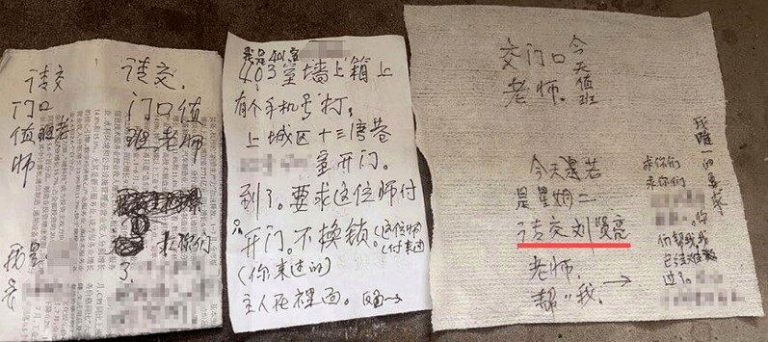 请交
门口
值班老
师
请交.
门口值
班老师
求你们
了.
我是
我是401室
403室墙上箱上
有个手机号"打,
上城区十三湾巷
室开门。
到了。要求这位师付
只开门。不换锁.(这位师
付来过)
(你来过的)
主人在裡面。
交门口
老师.
今天值
班
今天是若
是星期二
请交刘贤亮
老师.
帮"我.
我唯一的
求你们
求你们
你
们帮我我
已泣难
过了.